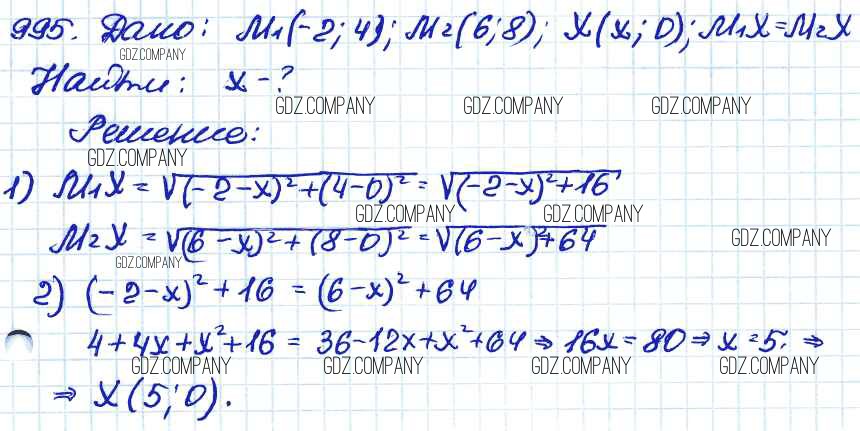 995. Дано: M₁(-2; 4); M₂(6; 8); X(x; 0); M₁X = M₂X
GDZ.COMPANY
Найти: x - ?
GDZ.COMPANY GDZ.COMPANY GDZ.COMPANY
Решение:
GDZ.COMPANY
1) M₁X = √(-2-x)²+(4-0)² = √(-2-x)²+16
GDZ.COMPANY GDZ.COMPANY
M₂X = √(6-x)²+(8-0)² = √(6-x)²+64
GDZ.COMPANY
GDZ.COMPANY
2) (-2-x)²+16 = (6-x)²+64
4+4x+x²+16 = 36-12x+x²+64 ⇒ 16x = 80 ⇒ x = 5; ⇒
GDZ.COMPANY GDZ.COMPANY GDZ.COMPANY GDZ.COMPANY
⇒ X(5; 0).